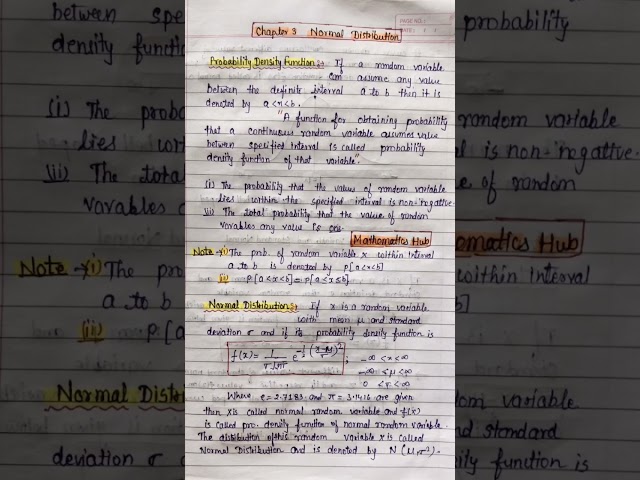 PAGE NO.:
DATE: / /
Chapter 3 Normal Distribution
Probability Density Function :- If a random variable
can assume any value
between the definite interval a to b then it is
denoted by a<x<b.
"A function for obtaining probability
that a continuous random variable assumes value
between specified interval is called probability
density function of that variable"
(i) The probability that the value of random variable
lies within the specified interval is non-negative.
(ii) The total probability that the value of random
varables any value is one.
Mathematics Hub
Note → (i) The prob. of random variable x within interval
a to b is denoted by P[a<x<b]
(ii) P[a<x<b] = P[a≤x≤b]
Normal Distribution :- If x is a random variable
with mean μ and standard
deviation σ and if its probability density function is
f(x) = 1/σ√2π e^-1/2(x-μ/σ)², -∞<x<∞
-∞<μ<∞
0<σ<∞
Where e=2.7183 and π=3.1416 are given
then x is called normal random variable and f(x)
is called pro. density function of normal random variable.
The distribution of this random variable x is called
Normal Distribution and is denoted by N(μ,σ²).